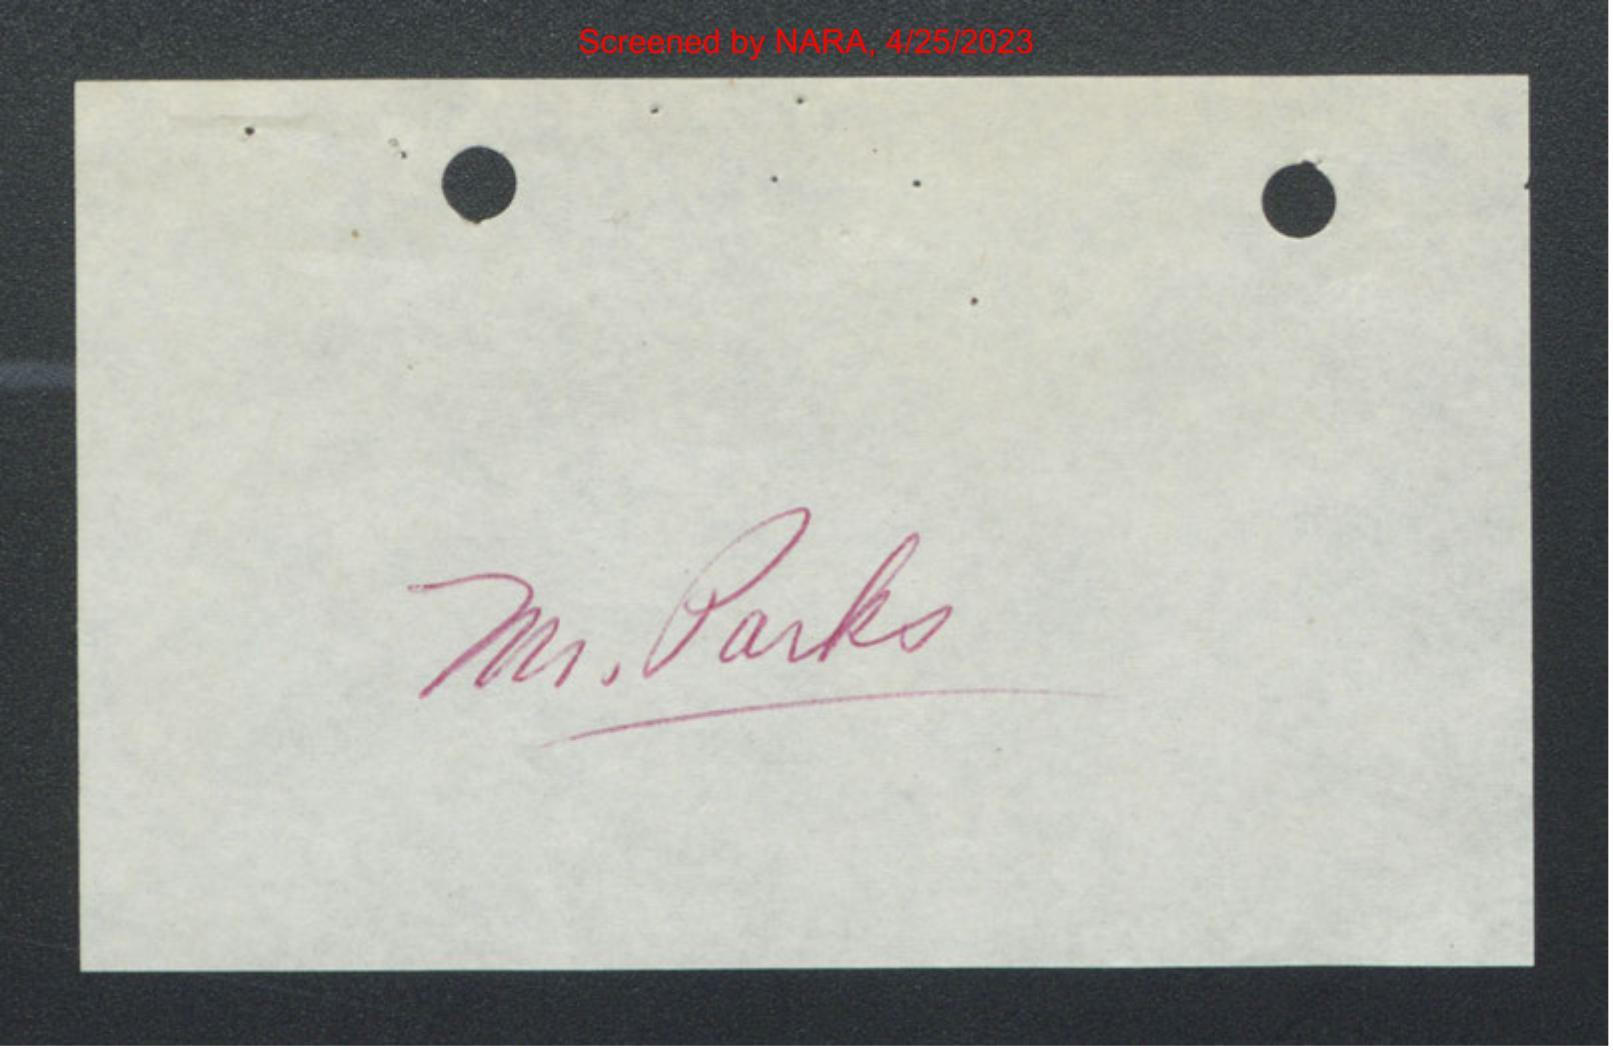 Screened by NARA, 4/25/2023
Mr. Parks